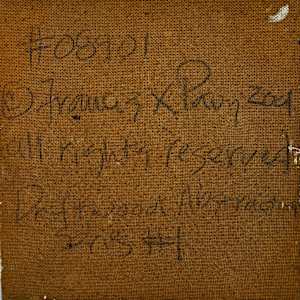 #08901
© Francis X Pavy 2001
All rights reserved
Driftwood Abstraction
#1